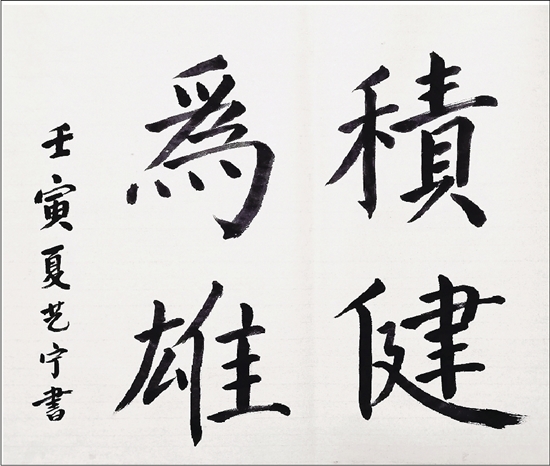 積健
為雄
壬寅夏艺宁書